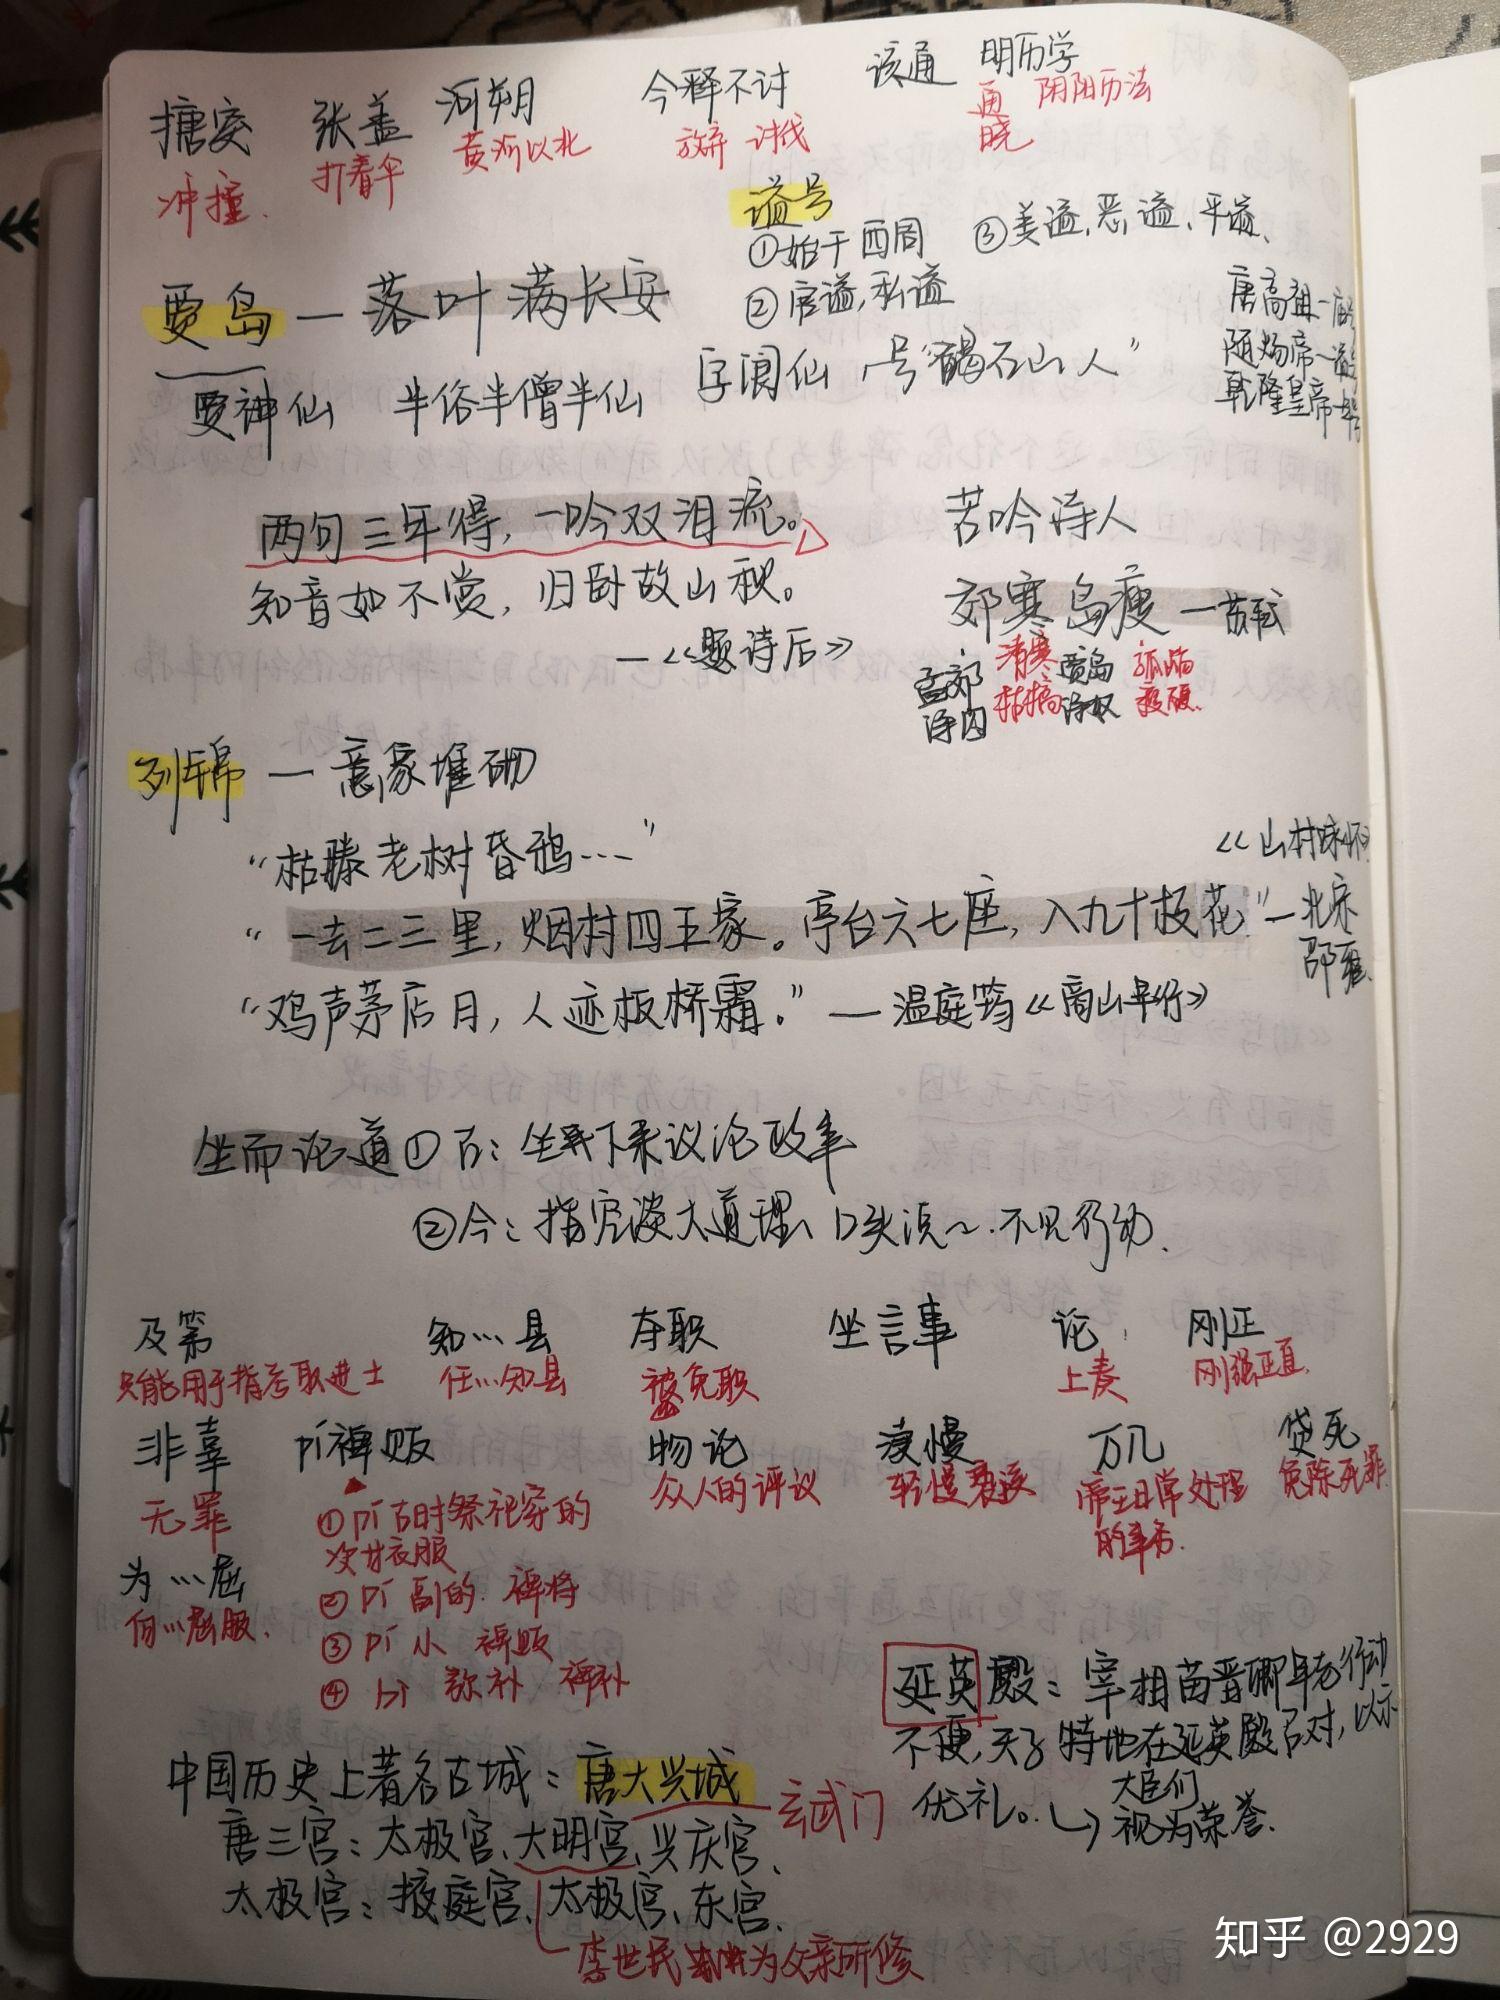 搪突 张盖 河朔 今释不讨 该通 明历学
冲撞. 打着伞 黄河以北 放弃 讨伐 通晓 阴阳历法
谥号
①始于西周 ③美谥,恶谥、平谥、
②官谥,私谥
唐高祖—庙号
随炀帝—谥号
乾隆皇帝—年号
贾岛—落叶满长安
贾神仙 半俗半僧半仙 字阆仙 号“碣石山人”
两句三年得,一吟双泪流。 苦吟诗人
知音如不赏,归卧故山秋。
—《题诗后》
郊寒岛瘦—苏轼
孟郊诗内 清寒枯槁 贾岛诗奴 孤峭瘦硬.
列锦—意象堆砌
“枯藤老树昏鸦...”
《山村咏怀》
“一去二三里,烟村四五家。亭台六七座,八九十枝花”—北宋邵雍
“鸡声茅店月,人迹板桥霜。”—温庭筠《商山早行》
坐而论道①古:坐下来议论政事
②今:指空谈大道理、口头说~.不见行动.
及第 知...县 夺职 坐言事 论 刚正
只能用于指考取进士 任...知县 被免职 上奏 刚强正直.
非辜 pí裨贩 物论 凌慢 万几 贷死
无罪 众人的评议 轻慢 帝王日常处理的事务. 免除死罪.
①pí古时祭祀穿的次等衣服
为...屈 ②pí副的 裨将
向...屈服. ③pí小 裨贩
④bì 弥补 裨补
延英殿:宰相苗晋卿年老行动不便,天子特地在延英殿召对,以示优礼。↳大臣们视为荣誉.
中国历史上著名古城:唐大兴城
唐三宫:太极宫、大明宫、兴庆宫、 玄武门
太极宫:掖庭宫、太极宫、东宫.
李世民为父亲所修
知乎 @2929